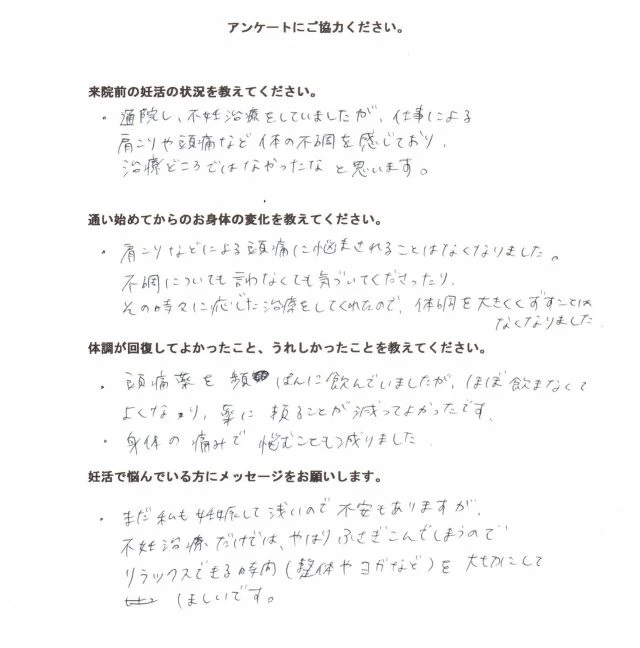 アンケートにご協力ください。
来院前の妊活の状況を教えてください。
・通院し、不妊治療をしていましたが、仕事による
肩こりや頭痛など体の不調を感じており、
治療どころではなかったな と思います。
通い始めてからのお身体の変化を教えてください。
・肩こりなどによる頭痛に悩まされることはなくなりました。
不調についても言わなくても気づいてくださったり、
その時々に応じた治療をしてくれたので、体調を大きくくずすことは
なくなりました.
体調が回復してよかったこと、うれしかったことを教えてください。
・頭痛薬を 頻 ぱんに飲んでいましたが、ほぼ飲まなくて
よくなり、薬に 頼ることが減ってよかったです.
・身体の痛みで 悩むことも減りました.
妊活で悩んでいる方にメッセージをお願いします。
・まだ私も妊娠して浅いので 不安もありますが、
不妊治療だけでは、やはりふさぎこんでしまうので
リラックスできる時間(整体やヨガなど)を 大切にして
ほしいです。